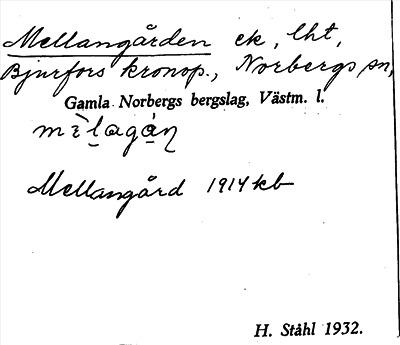 Mellangården ek, lht,
Bjurfors kronop., Norbergs sn,
Gamla Norbergs bergslag, Västm. l.
Mellangård 1914 kb
H. Ståhl 1932.